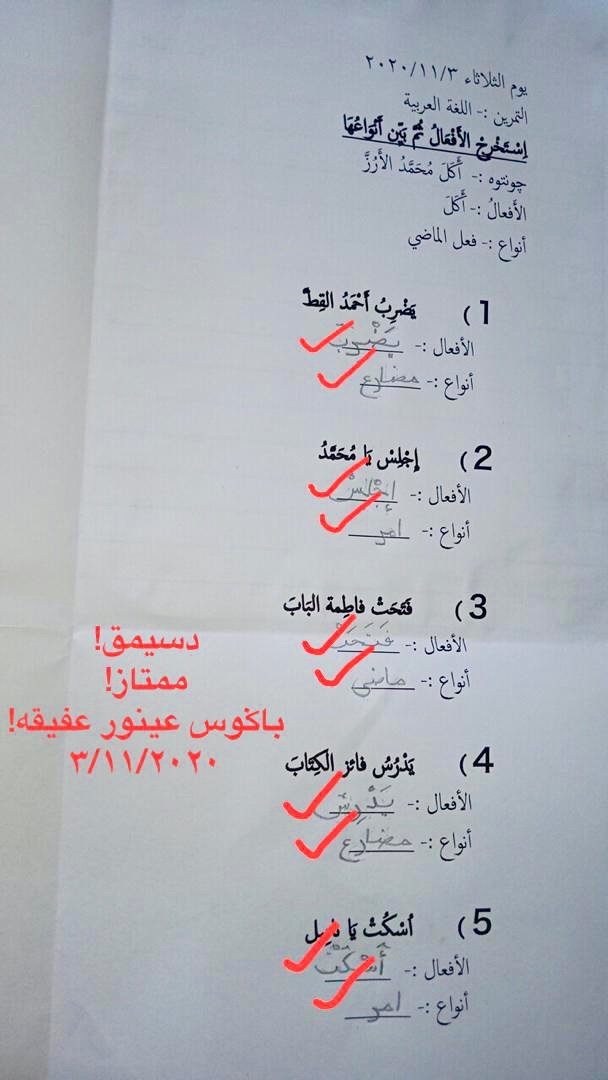 يوم الثلاثاء ٢٠٢٠/١١/٣
التمرين :- اللغة العربية
اِسْتَخْرِجْ الأَفْعَالُ ثُمَّ بَيِّن أَنْوَاعُهَا
چونتوه :- أَكَلَ مُحَمَّدُ الأَرُزَّ
الأَفعالُ :- أَكَلَ
أنواع :- فعل الماضي
1 ) يَضْرِبُ أَحْمَدُ القِطَّ
الأفعال :- يَضْرِبُ
أنواع :- مضارع
2 ) اِجْلِسْ يَا مُحَمَّدُ
الأفعال :- إِجْلِسْ
أنواع :- امر
3 ) فَتَحَتْ فاطِمة البَابَ
الأفعال :- فَتَحَتْ
أنواع :- ماضي
4 ) يَدْرُسُ فائز الكِتَابَ
الأفعال :- يَدْرِش
أنواع :- مضارع
5 ) اُسْكُتْ يَا
الأفعال :- أُسْكُتْ
أنواع :- امر
دسيمق!
ممتاز!
باݢوس عينور عفيقه!
٣/١١/٢٠٢٠